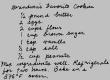 Grandma's Favorite Cookies
½ pound butter
2 eggs
2 cups flour
1 cup brown sugar
1 cup
½ salt
½ cup peanuts
Mix ingredients well. Refrigerate
for two hours. Bake in a
350° oven.